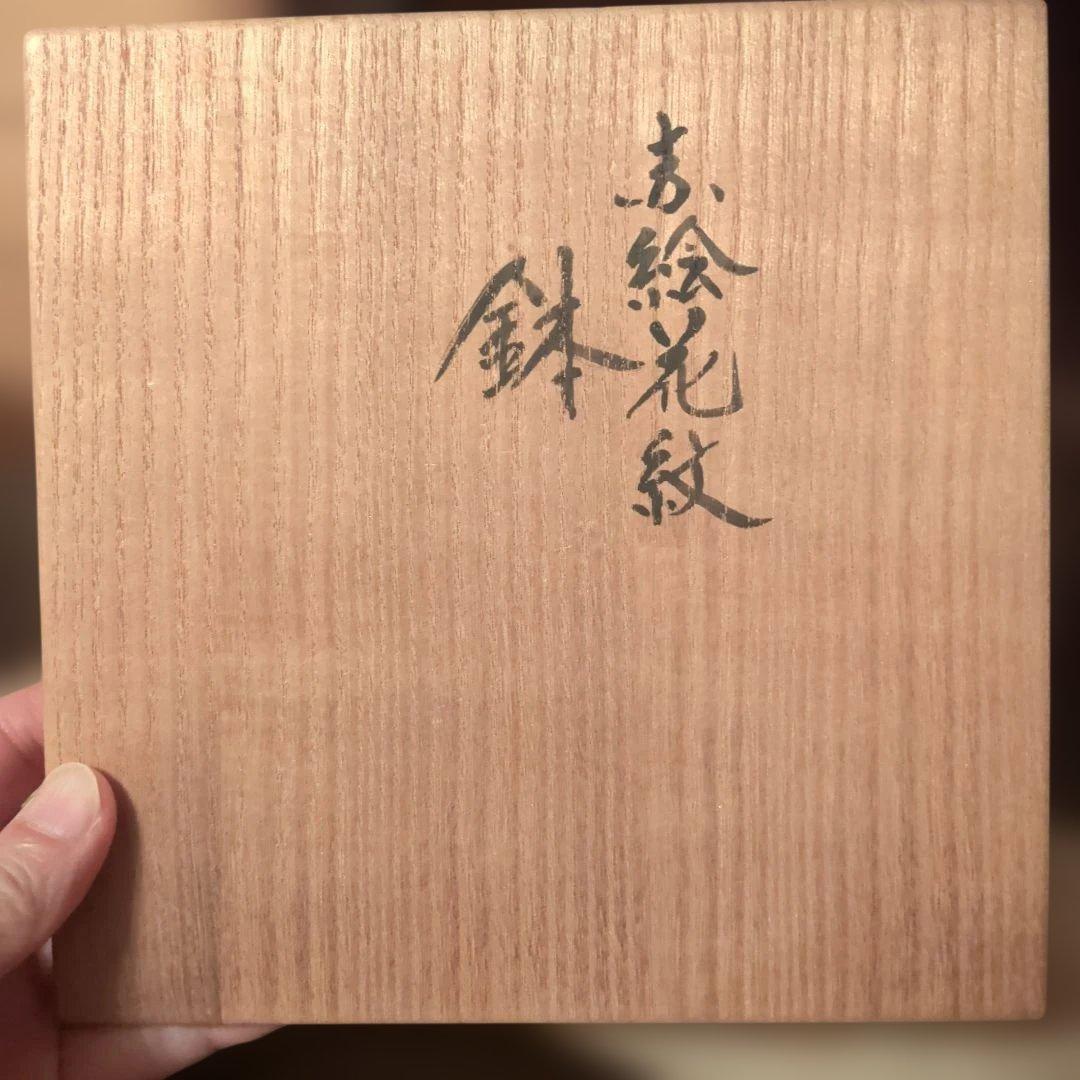 赤絵花紋
鉢